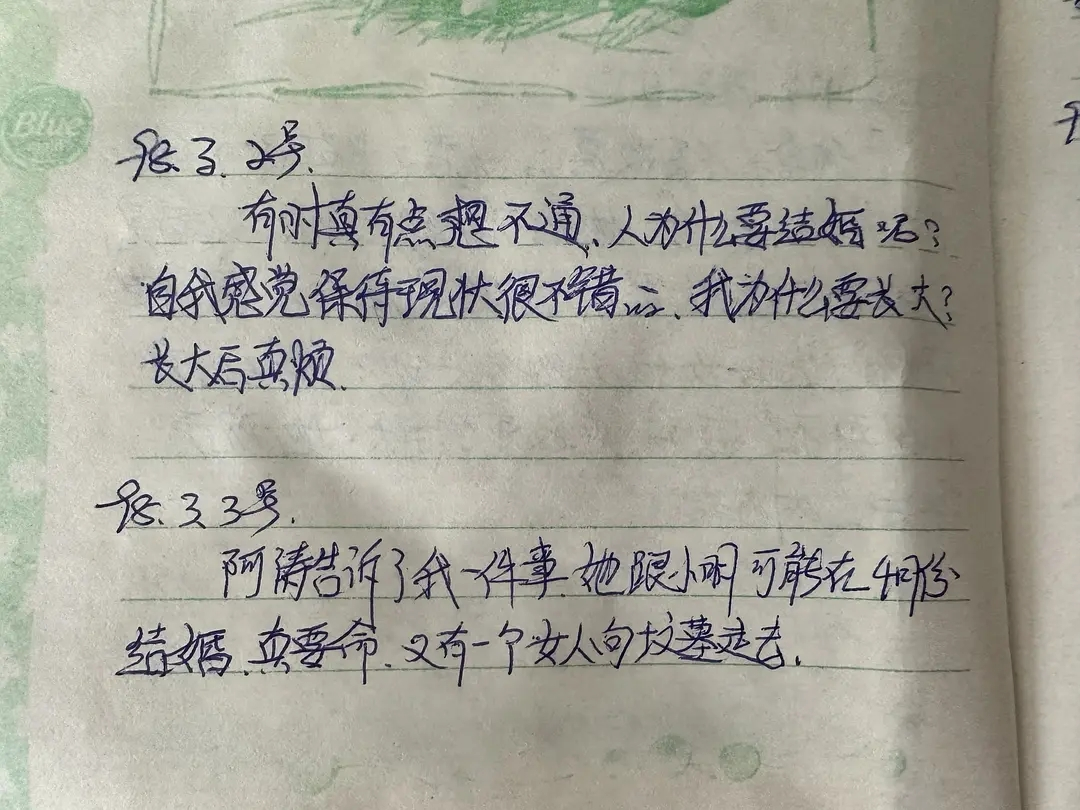 Blue
98.3.2号.
有时真有点想不通、人为什么要结婚呢?
自我感觉保持现状很不错...、我为什么要长大?
长大后真烦.
98.3.3号.
阿涛告诉了我一件事.她跟小明可能在4月份
结婚.真要命.又有一个女人向坟墓走去.